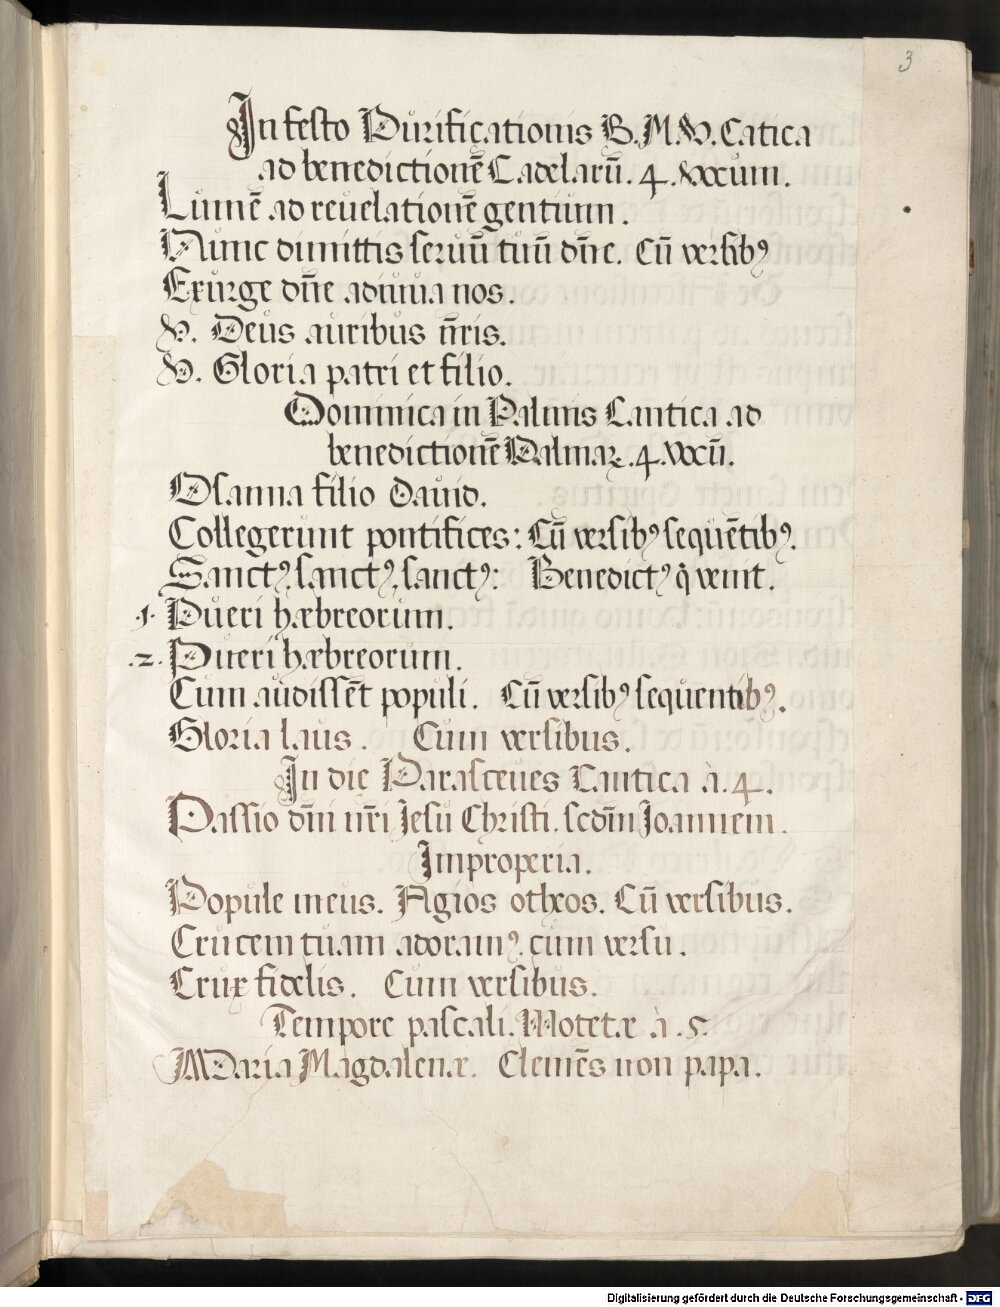 3
In festo Purificationis B. M. V. Cātica
ad benedictionē Cādelarū. 4. vocum.
Lumē ad reuelationē gentium.
Nunc dimittis seruū tuū dn̄e. Cū versibꝰ
Exurge dn̄e adiuua nos.
V. Deus auribus nr̄is.
V. Gloria patri et filio.
Dominica in Palmis Cantica ad
benedictionē Palmaꝝ. 4. Vocū.
Osanna filio Dauid.
Collegerunt pontifices: Cū versibꝰ sequētibꝰ.
Sanctꝰ, sanctꝰ, sanctꝰ: Benedictꝰ q̇ venit.
.1. Pueri hæbreorum.
.2. Pueri hæbreorum.
Cum audissēt populi. Cū versibꝰ sequentibꝰ.
Gloria laus. Cum versibus.
In die Parasceues Cantica à. 4.
Passio dn̄i nr̄i Jesu Christi. scdm̄ Joannem.
Improperia.
Popule meus. Agios otheos. Cū versibus.
Crucem tuam adoramꝰ. cum versu.
Crux fidelis. Cum versibus.
Tempore pascali. Motetæ à .5.
Maria Magdalenæ. Clemēs non papa.
Digitalisierung gefördert durch die Deutsche Forschungsgemeinschaft - DFG